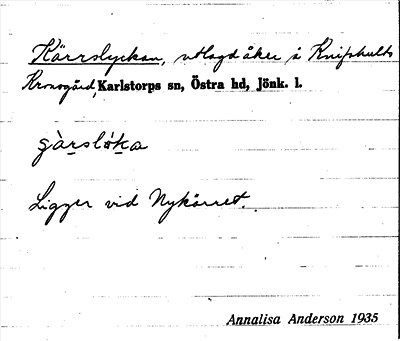 Kärrslyckan, utlagd åker å Knifshults
Kronogård, Karlstorps sn, Östra hd, Jönk. l.
Ligger vid Nykärret.
Annalisa Anderson 1935